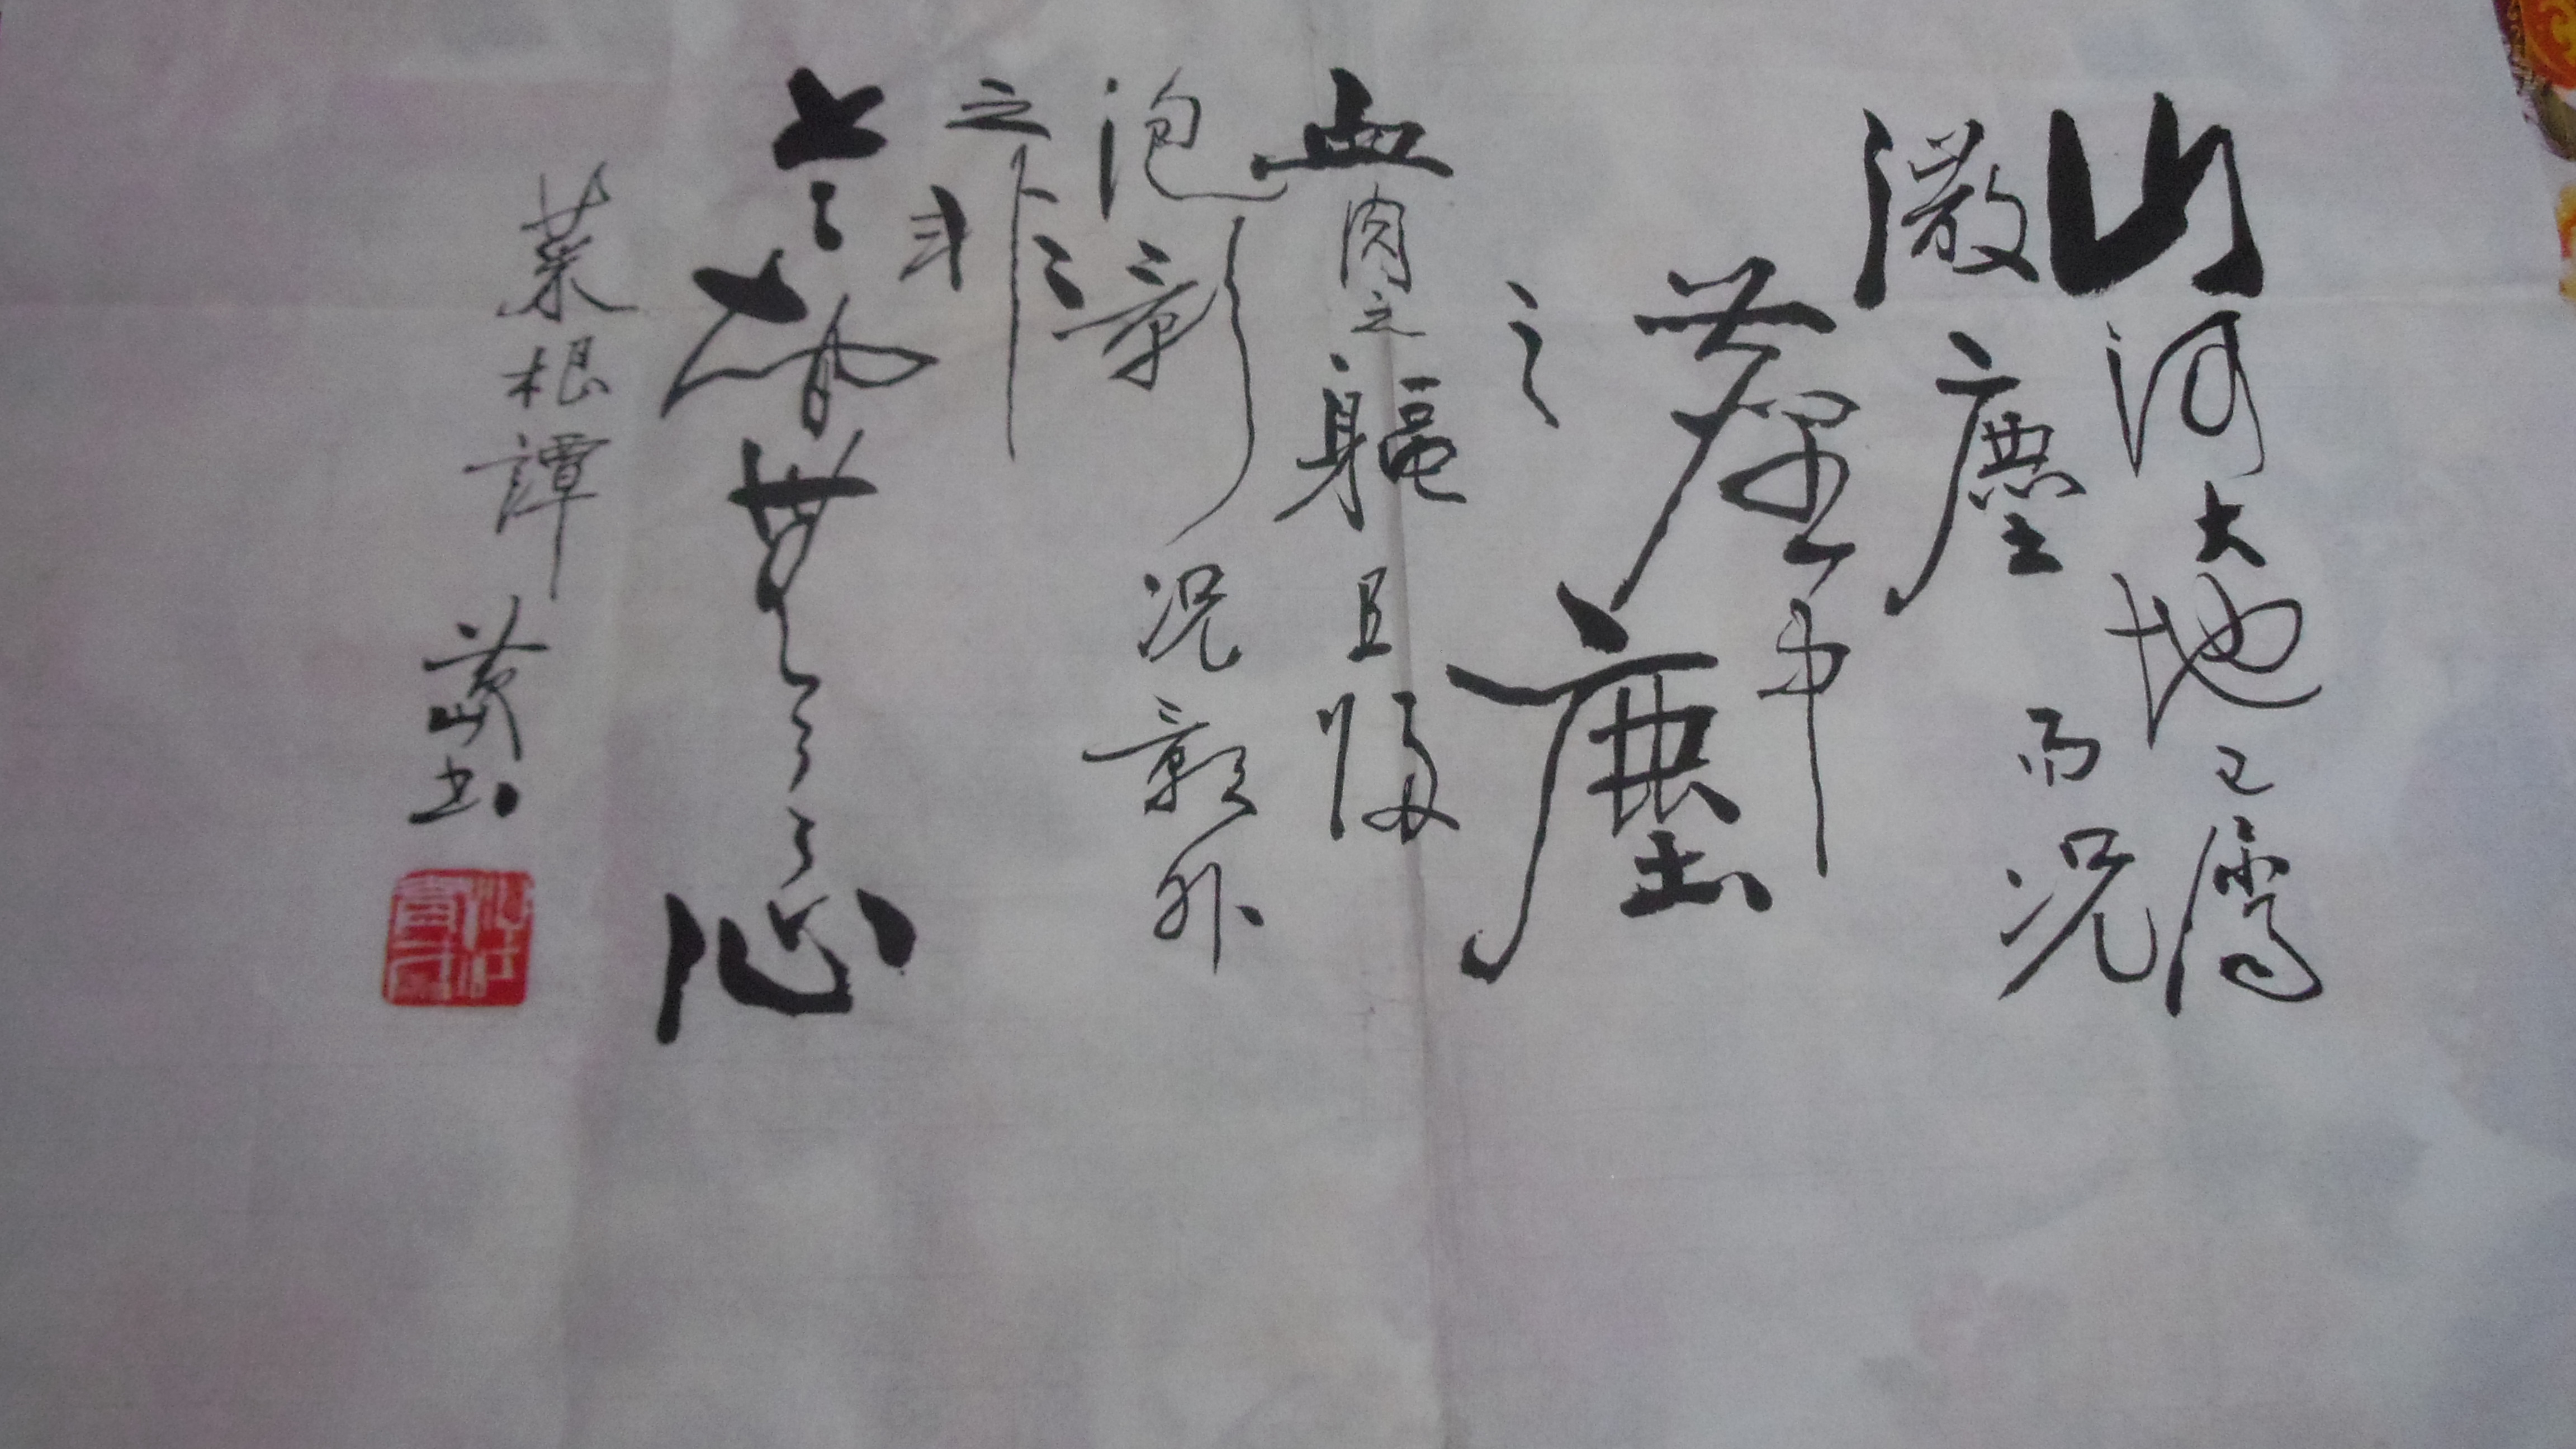 山河大地已屬
微塵而況
塵中
之塵
血肉之軀且歸
泡影況影外
之影
非上上智無了了心
菜根譚
書